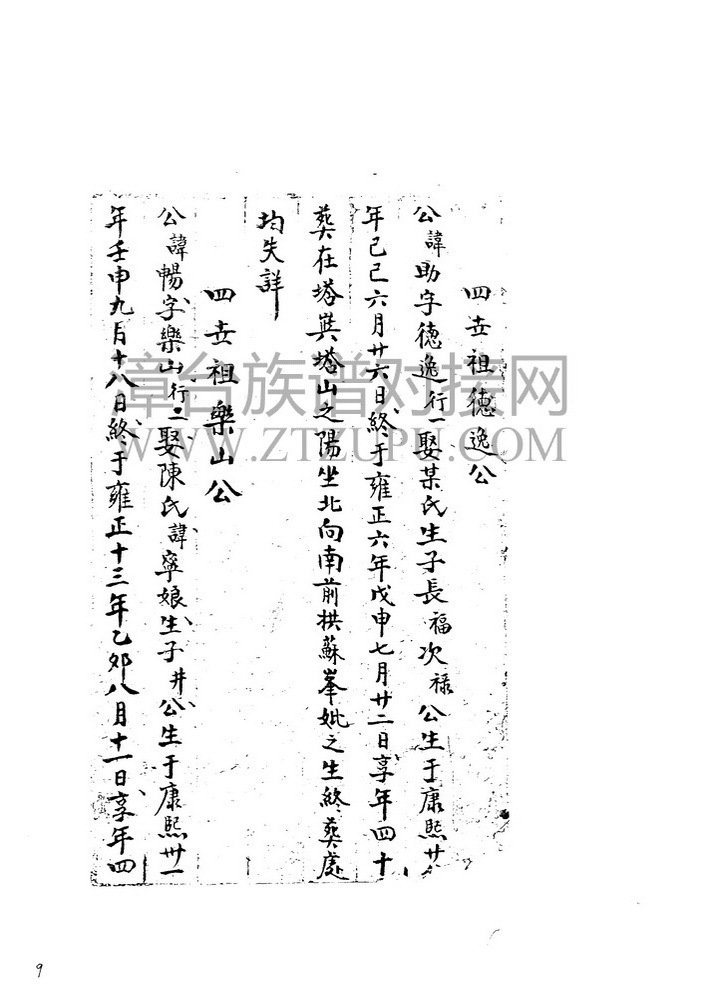 四世祖德逸公
公諱助字德逸行一娶某氏生子長福次禄公生于康熙廿
年己巳六月廿六日終于雍正六年戊申七月廿二日享年四十
葬在塔巽塔山之陽坐北向南前拱蘇峯妣之生終葬處
均失詳
四世祖樂山公
公諱暢字樂山行二娶陳氏諱寧娘生子井公生于康熙卅一
年壬申九月十八日終于雍正十三年乙卯八月十一日享年四
章台族谱对接网
WWW.ZTZUPU.COM
9